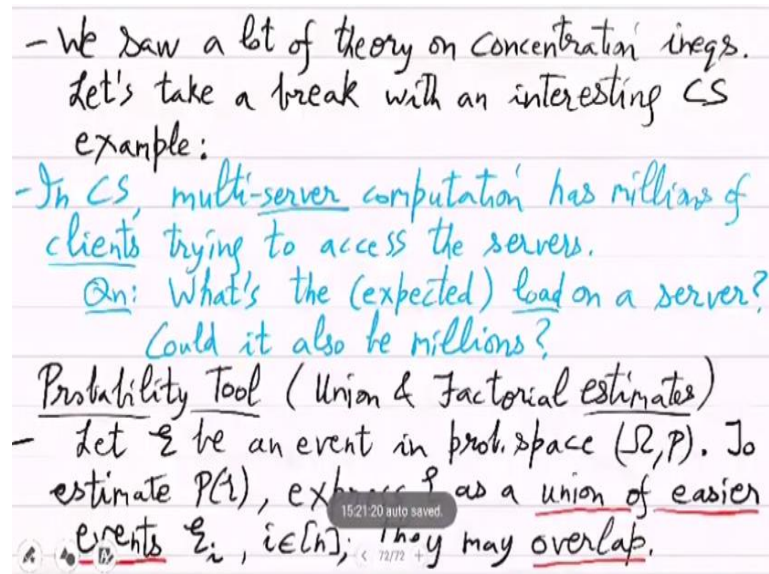 - We saw a lot of theory on concentration ineqs.
Let's take a break with an interesting CS
example:
- In CS, multi-server computation has millions of
clients trying to access the servers.
Qn: What's the (expected) load on a server?
Could it also be millions?
Probability Tool (Union & Factorial estimates)
- Let ℰ be an event in prob. space (Ω, P). To
estimate P(ℰ), ℰ as a union of easier
15:21:20 auto saved.
events ℰᵢ, i∈[n]; They may overlap.
< 72/72 +